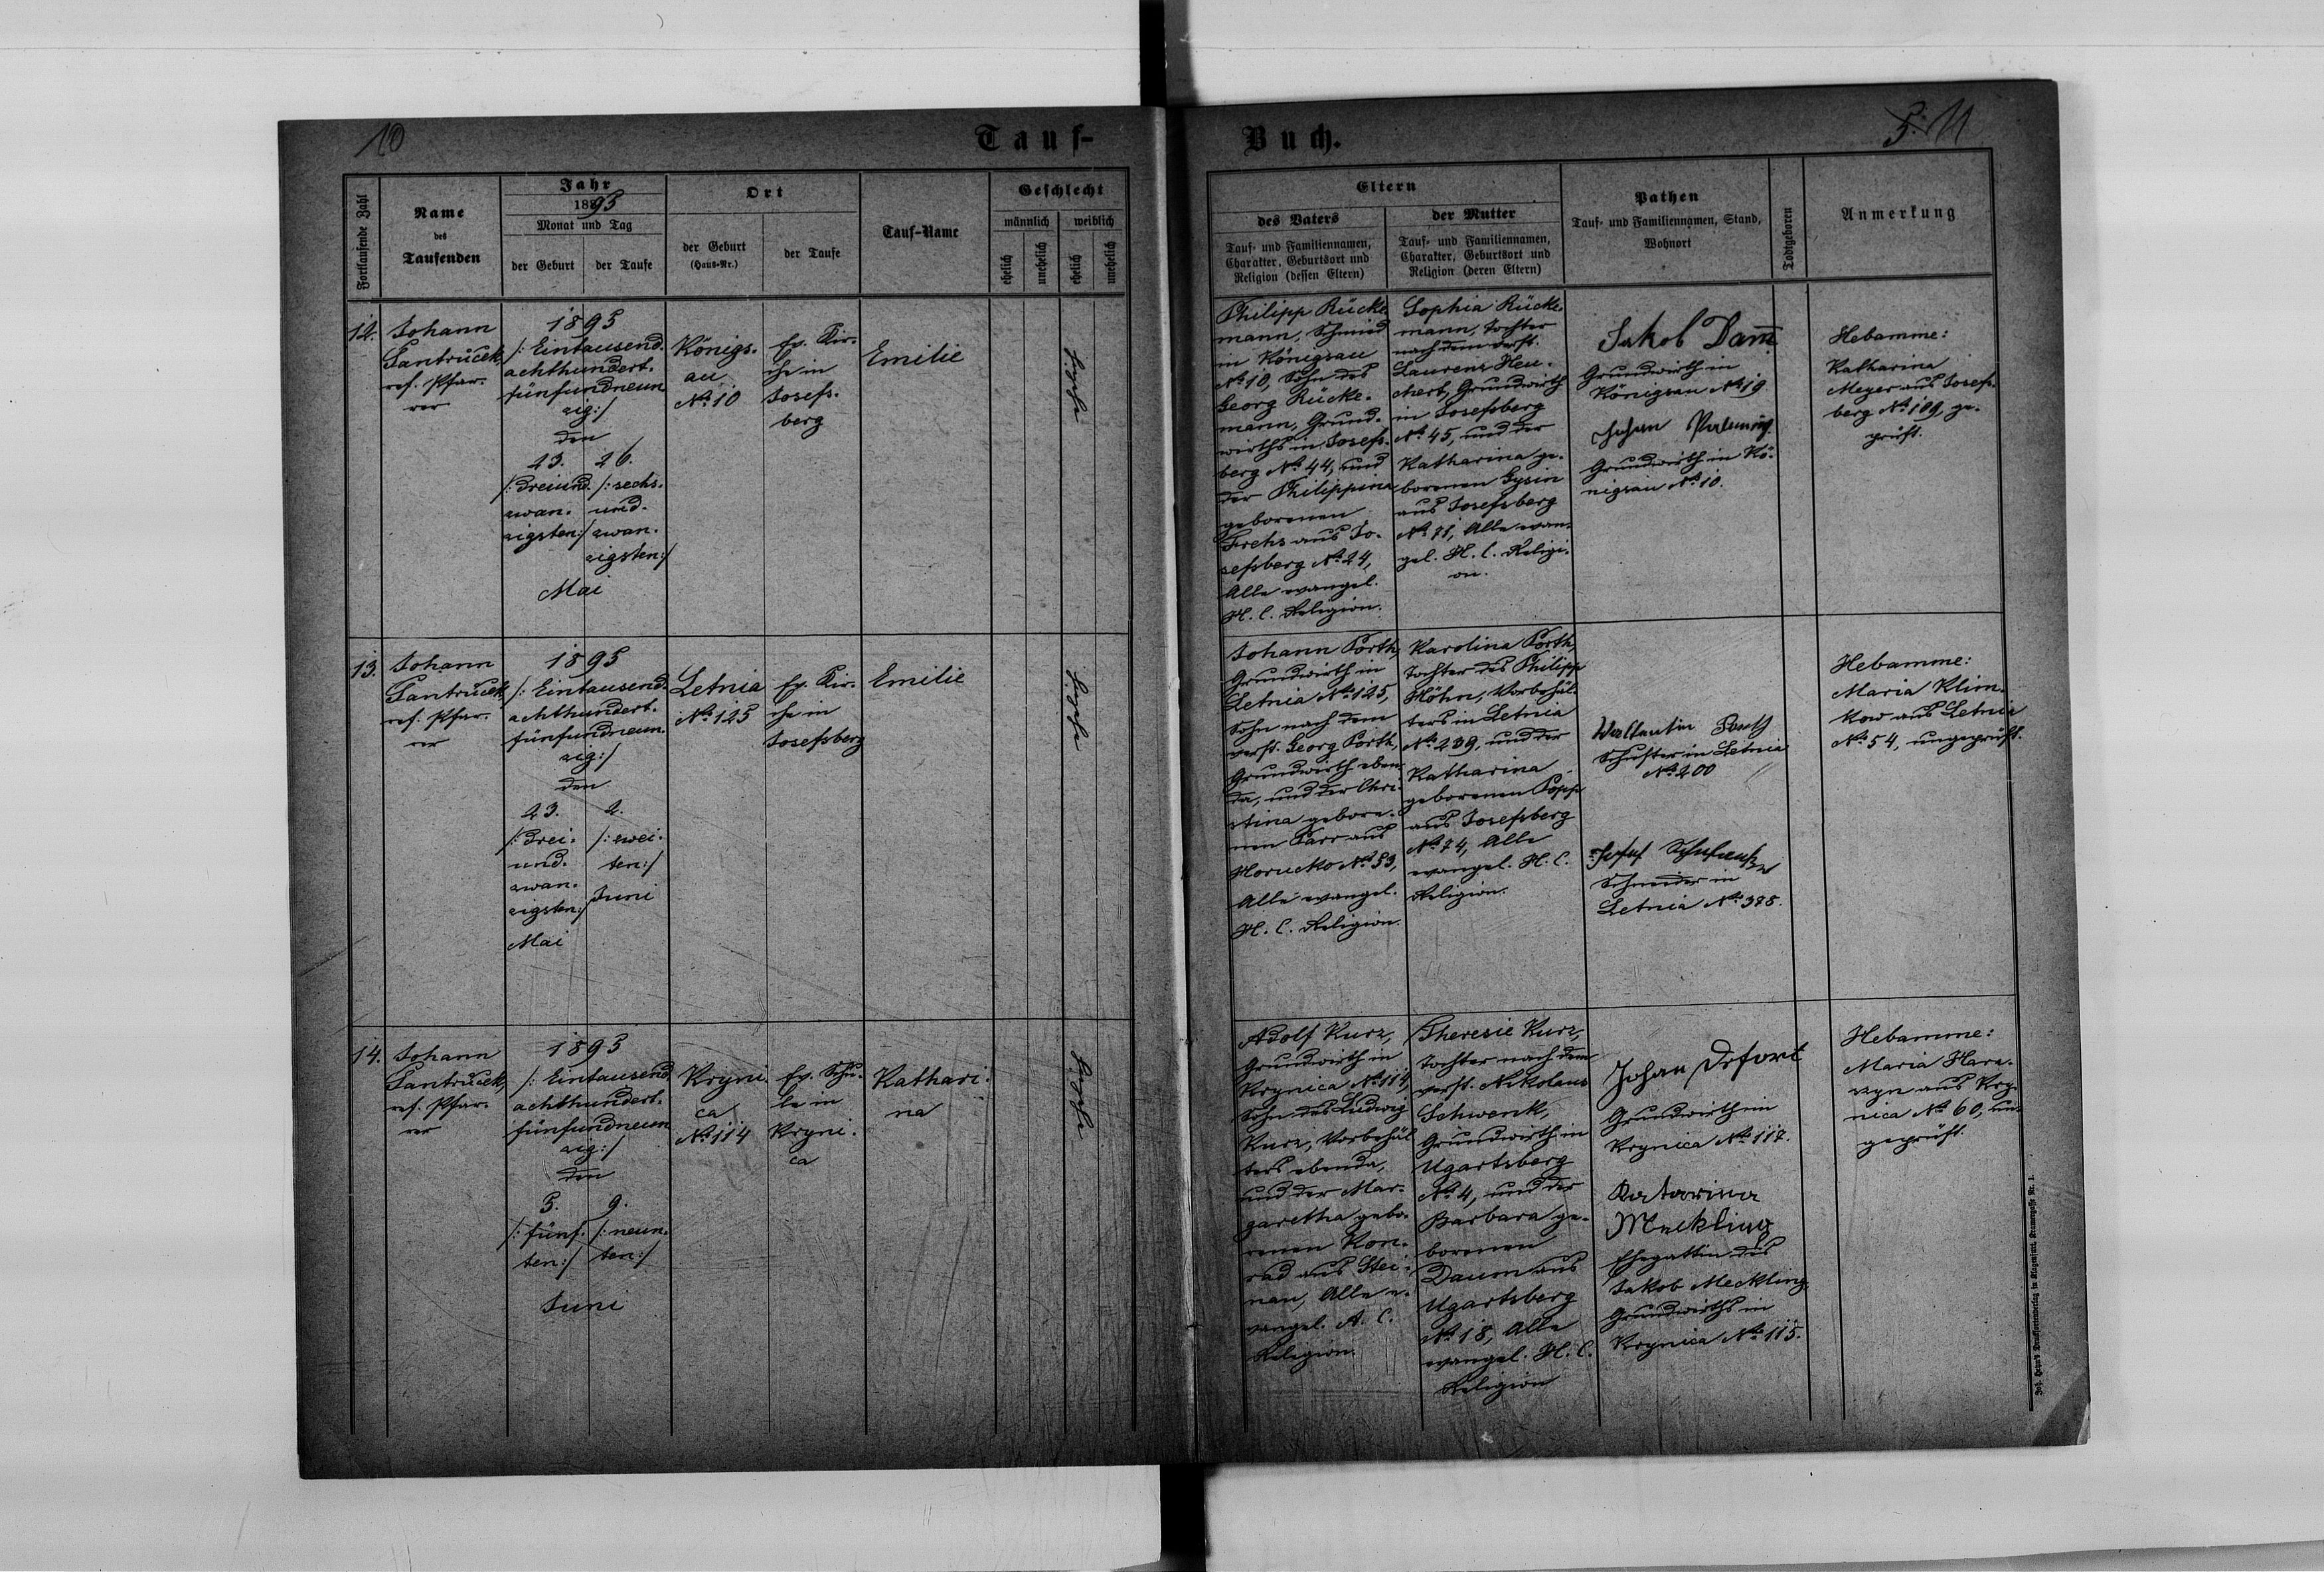 10
Tauf-
Fortlaufende Zahl
Name
des
Taufenden
Jahr
1895
Monat und Tag
der Geburt
der Taufe
Ort
der Geburt
(Haus-Nr.)
der Taufe
Tauf-Name
Geschlecht
männlich
weiblich
ehelich
unehelich
ehelich
unehelich
12.
Johann
Jantruček,
ref. Pfar-
rer
1895
/: Eintausend-
achthundert-
fünfundneun
zig :/
den
23.
/: Dreiund-
zwan-
zigsten :/
26.
/: sechs-
und-
zwan-
zigsten :/
Mai
Königs-
au
No. 10
Ev. Kir-
che in
Josefs-
berg
Emilie
13.
Johann
Jantruček,
ref. Pfar-
rer
1895
/: Eintausend-
achthundert-
fünfundneun-
zig :/
den
23.
/: Drei-
und-
zwan-
zigsten :/
Mai
2.
/: zwei-
ten :/
Juni
Letnia
No. 125
Ev. Kir-
che in
Josefsberg
Emilie
14.
Johann
Jantruček,
ref. Pfar-
rer
1895
/: Eintausend
achthundert-
fünfundneun
zig :/
den
5.
/: fünf-
ten :/
9.
/: neun-
ten :/
Juni
Kryni-
ca
No. 114
Ev. Schu-
le in
Kryni-
ca
Kathari-
na
Buch.
5. 11
Eltern
des Vaters
Tauf- und Familiennamen,
Charakter, Geburtsort und
Religion (dessen Eltern)
der Mutter
Tauf- und Familiennamen,
Charakter, Geburtsort und
Religion (deren Eltern)
Pathen
Tauf- und Familiennamen, Stand,
Wohnort
Todtgeboren
Anmerkung
Philipp Rücke
mann, Schmied
in Königsau
No. 10, Sohn des
Georg Rücke-
mann, Grund-
wirths in Josefs-
berg No. 44, und
der Philippina
geborenen
aus Jo-
sefsberg No. 24,
Alle evangel.
H. C. Religion.
Sophia Rücke
mann, Tochter
nach dem verst.
Laurenz Heu-
chert, Grundwirth
in Josefsberg
No. 45, und der
Katharina ge-
borenen
aus Josefsberg
No. 71, Alle evan-
gel. H. C. Religi-
on.
Jakob Dam̅
Grundwirth in
Königsau No. 19
Johan
Grundwirth in Kö-
nigsau No. 10.
Hebamme:
Katharina
Meyer aus Josefs-
berg No. 109, ge-
prüft.
Johann Porth,
Grundwirth in
Letnia No. 125,
Sohn nach dem
verst. Georg Porth,
Grundwirth eben-
da, und der Chri-
stina gebore-
nen aus
Horucko No. 53,
Alle evangel.
H. C. Religion.
Karolina Porth,
Tochter des Philipp
Höhn, Vorbehäl-
ters in Letnia
No. 239, und der
Katharina
geborenen Popp
aus Josefsberg
No. 74, Alle
evangel. H. C.
Religion.
Wallentin Porth
Schuster in Letnia
No. 200
Josef
Schneider in
Letnia No. 375.
Hebamme:
Maria Klim-
kow aus Letnia
No. 54, ungeprüft.
Adolf Kurz,
Grundwirth in
Krynica No. 114,
Sohn des Ludwig
Kurz, Vorbehäl
ters ebenda,
und der Mar-
garetha gebo-
renen Kon-
rad aus Stei-
nau, Alle e-
vangel. A. C.
Religion.
Theresie Kurz,
Tochter nach dem
verst. Nikolaus
Schwenk,
Grundwirth in
Ugartsberg
No. 4, und der
Barbara ge-
borenen
Daum aus
Ugartsberg
No. 18, Alle
evangel. H. C.
Religion
Johan
Grundwirth in
Krynica No. 117.
Katarina
Meckling
Ehegattin des
Jakob Meckling,
Grundwirths in
Krynica No. 115.
Hebamme:
Maria Hara-
aus Kry-
nica No. 60, un-
geprüft.